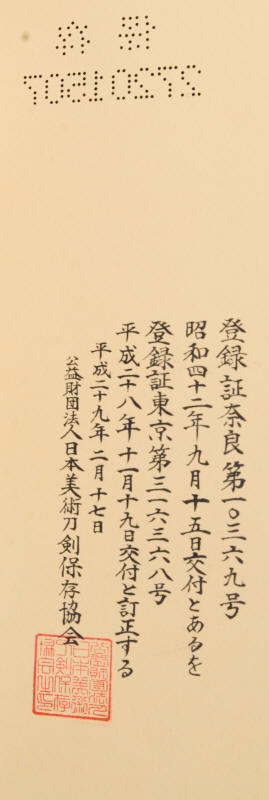 登録証奈良第一〇三六九号
昭和四十二年九月十五日交付とあるを
登録証東京第三一六三六八号
平成二十八年十一月十九日交付と訂正する
平成二十九年二月十七日
公益財団法人日本美術刀剣保存協会